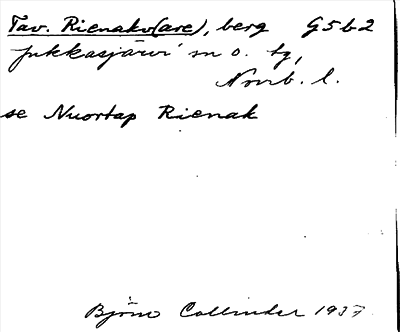 Tav. Rienakv(are), berg G5b2
Jukkasjärvi sn o. tg,
Norrb. l.
se Nuortap Rienak
Björn Collinder 1937